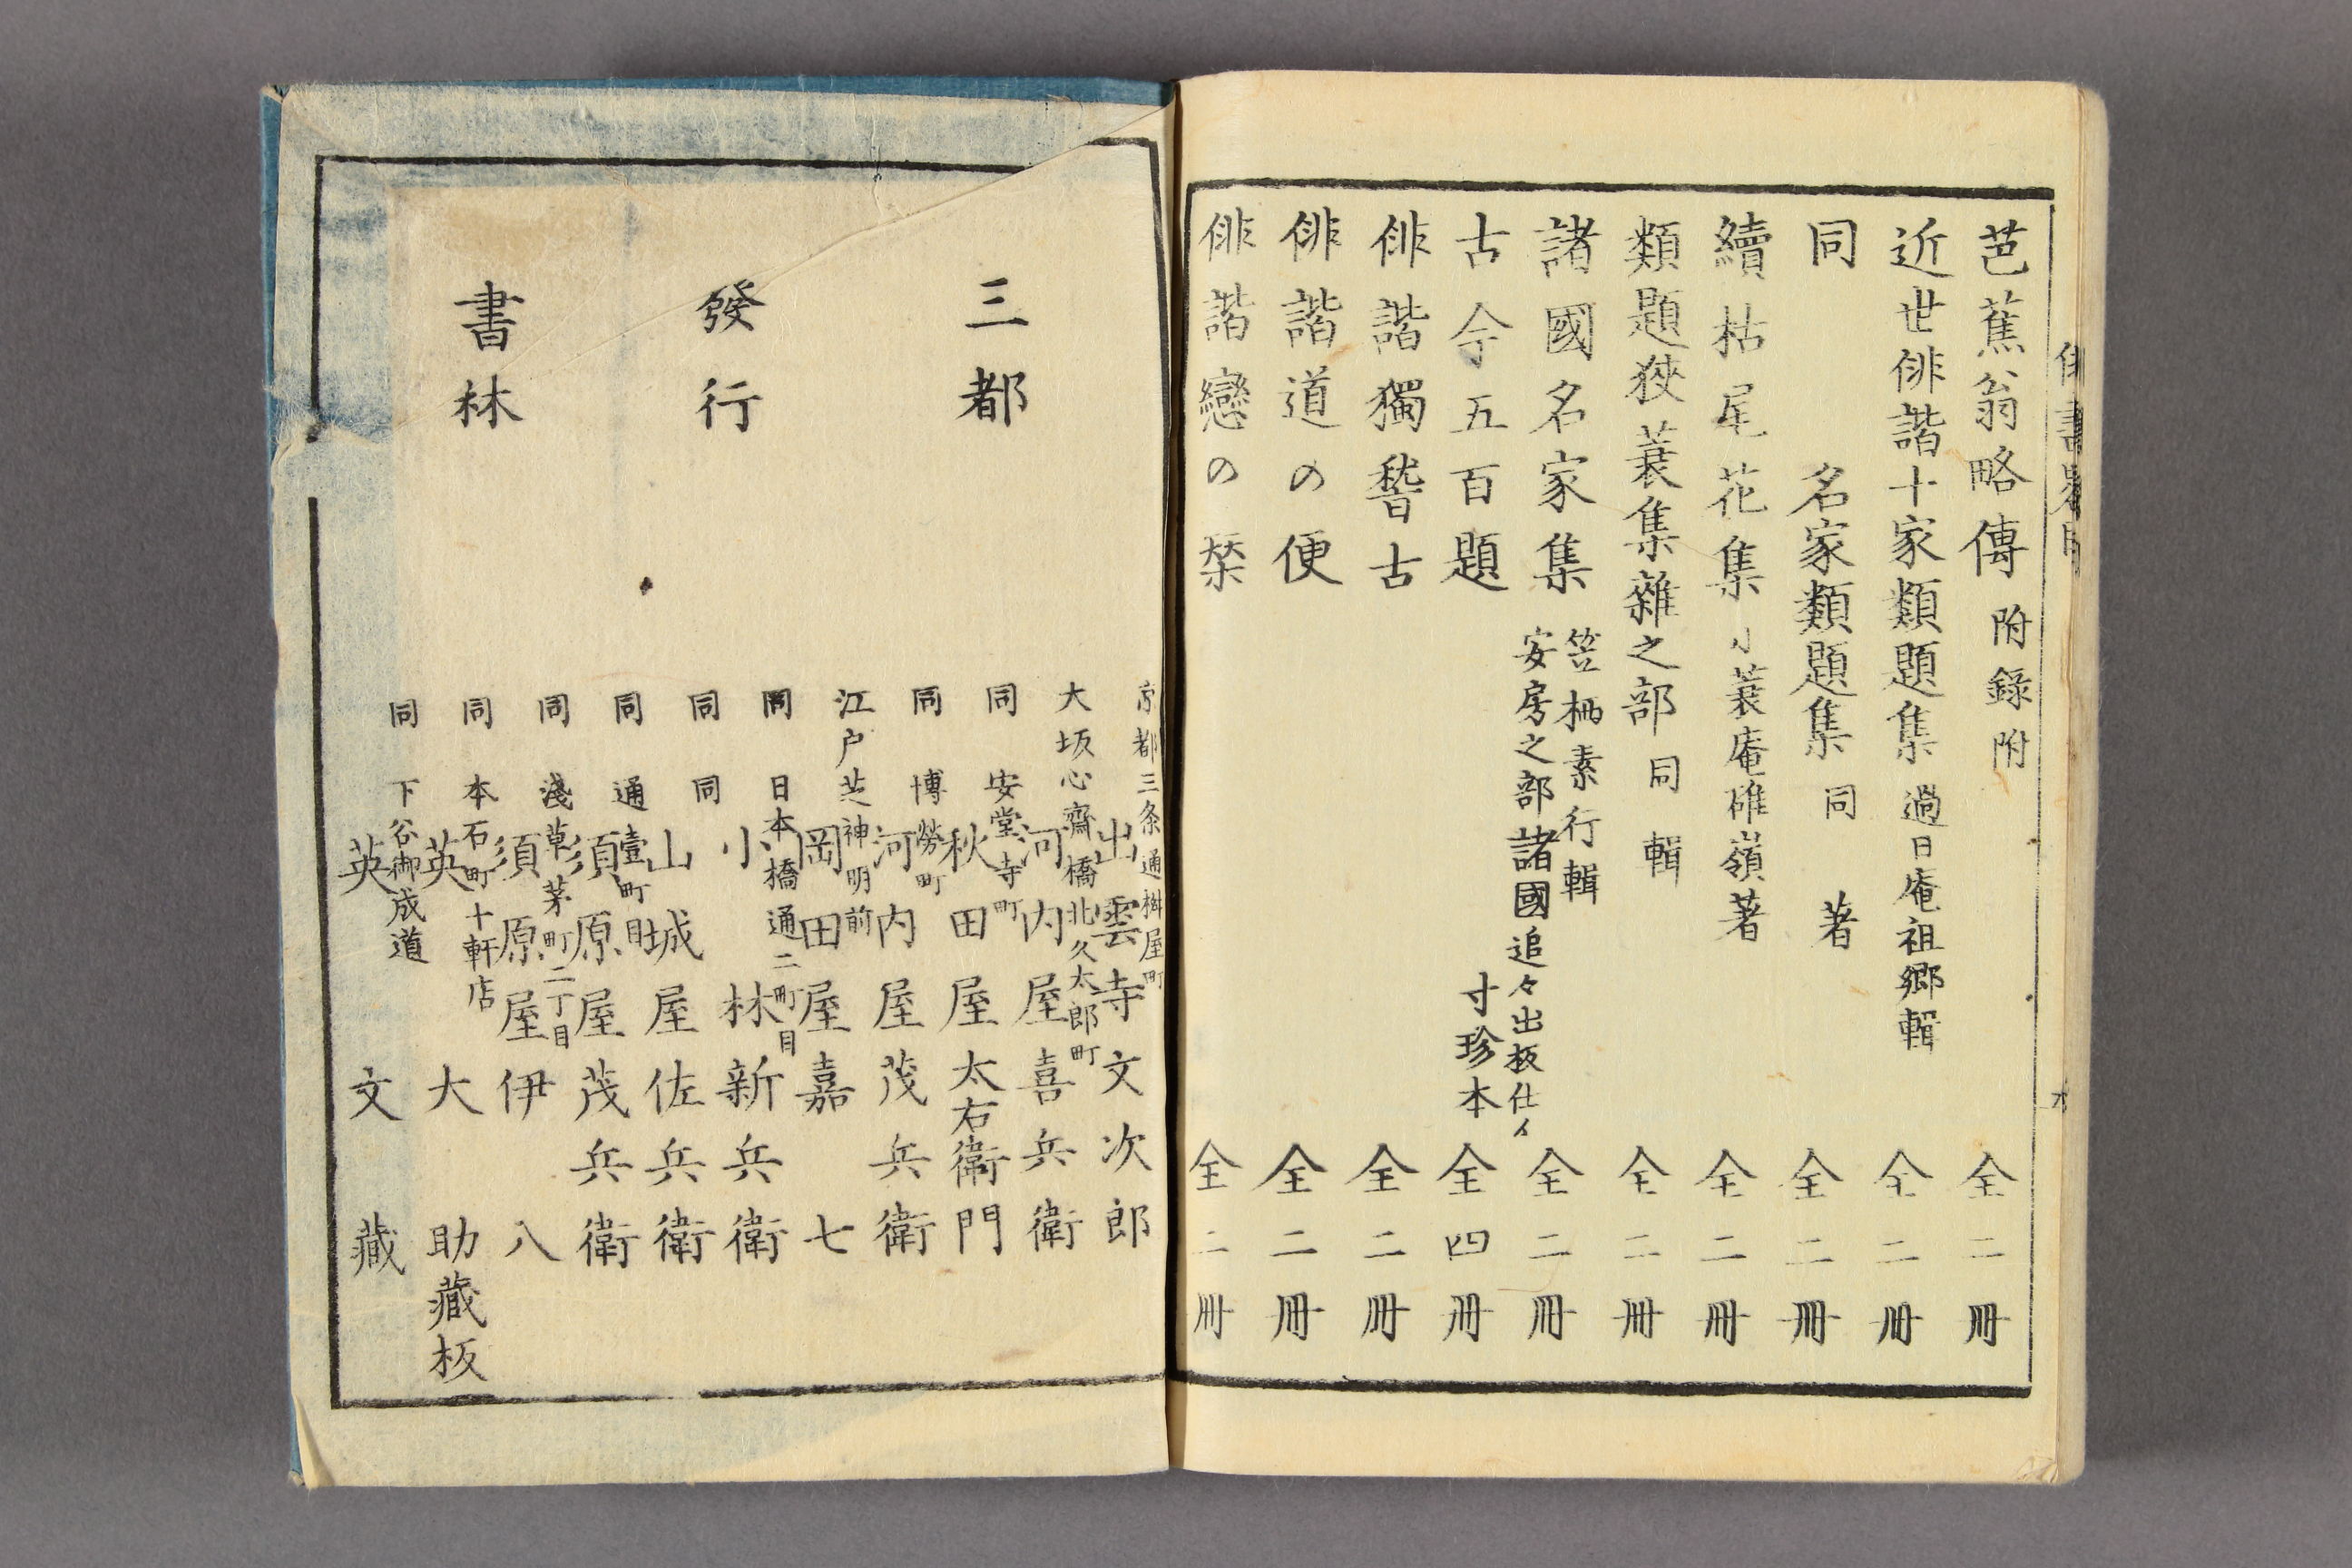 芭蕉翁略傳 附録附 全二冊
近世俳諧十家類題集 過日庵祖郷輯 全二冊
同 名家類題集 同 著 全二冊
續枯尾花集 小蓑庵碓嶺著 全二冊
類題狹蓑集雜之部 同 輯 全二冊
諸國名家集 笠栖素行輯 全二冊
安房之部諸國追々出板仕
古今五百題 寸珍本 全四冊
俳諧獨稽古 全二冊
俳諧道の便 全二冊
俳諧戀の栞 全二冊
三都
發行
書林
京都三条通桝屋町 出雲寺文次郎
大坂心齋橋北久太郎町 河内屋喜兵衛
同 安堂寺町 秋田屋太右衛門
同 博勞町 河内屋茂兵衛
江戸芝神明前 岡田屋嘉七
同 日本橋通二町目 小林新兵衛
同 同 山城屋佐兵衛
同 通壹町目 須原屋茂兵衛
同 淺草茅町二丁目 須原屋伊八
同 本石町十軒店 英大助藏板
同 下谷御成道 英文藏